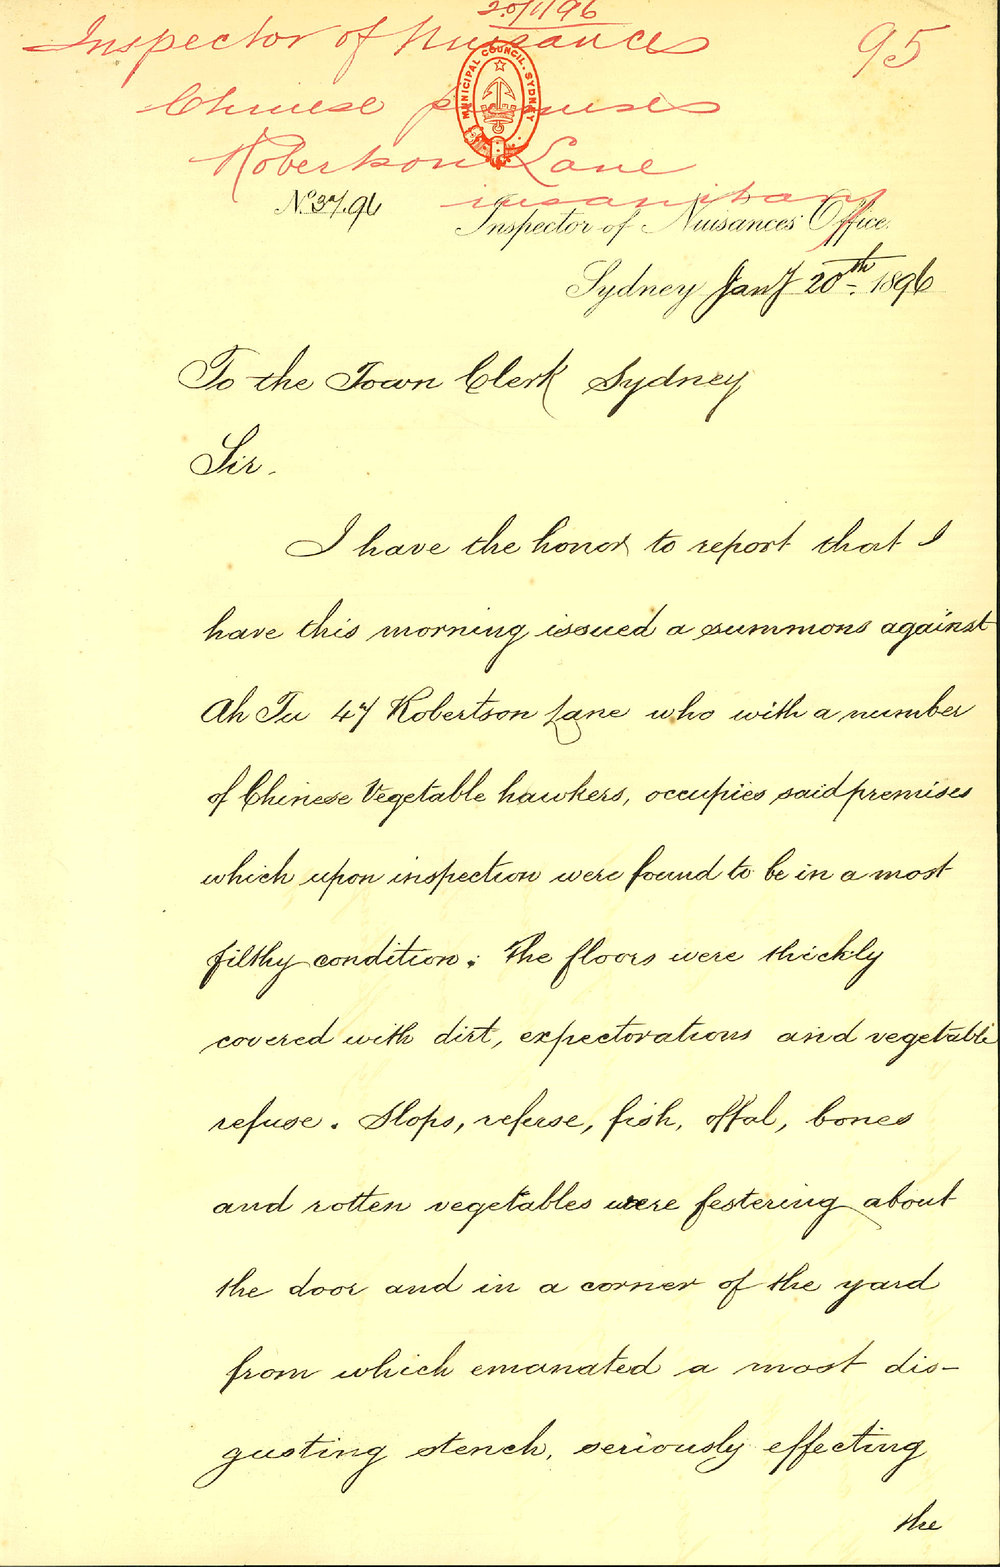 20/1/96
Inspector of Nuisances
95
Chinese premises
Robertson Lane
insanitary
MUNICIPAL COUNCIL. SYDNEY
No. 37/96
Inspector of Nuisances' Office
Sydney Jany 20th 1896
To the Town Clerk Sydney
Sir.
I have the honor to report that I
have this morning issued a summons against
Ah Tu 47 Robertson Lane who with a number
of Chinese Vegetable hawkers, occupies said premises
which upon inspection were found to be in a most
filthy condition. The floors were thickly
covered with dirt, expectorations and vegetable
refuse. Slops, refuse, fish, offal, bones
and rotten vegetables were festering about
the door and in a corner of the yard
from which emanated a most dis-
gusting stench, seriously effecting
the